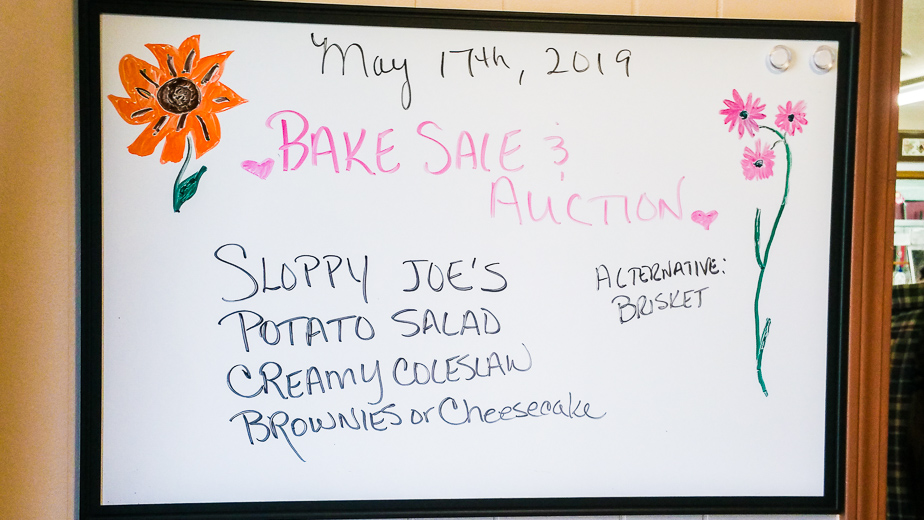 May 17th, 2019
BAKE SALE &
AUCTION
SLOPPY JOE'S
POTATO SALAD
CREAMY COLESLAW
BROWNIES or Cheesecake
ALTERNATIVE:
BRISKET